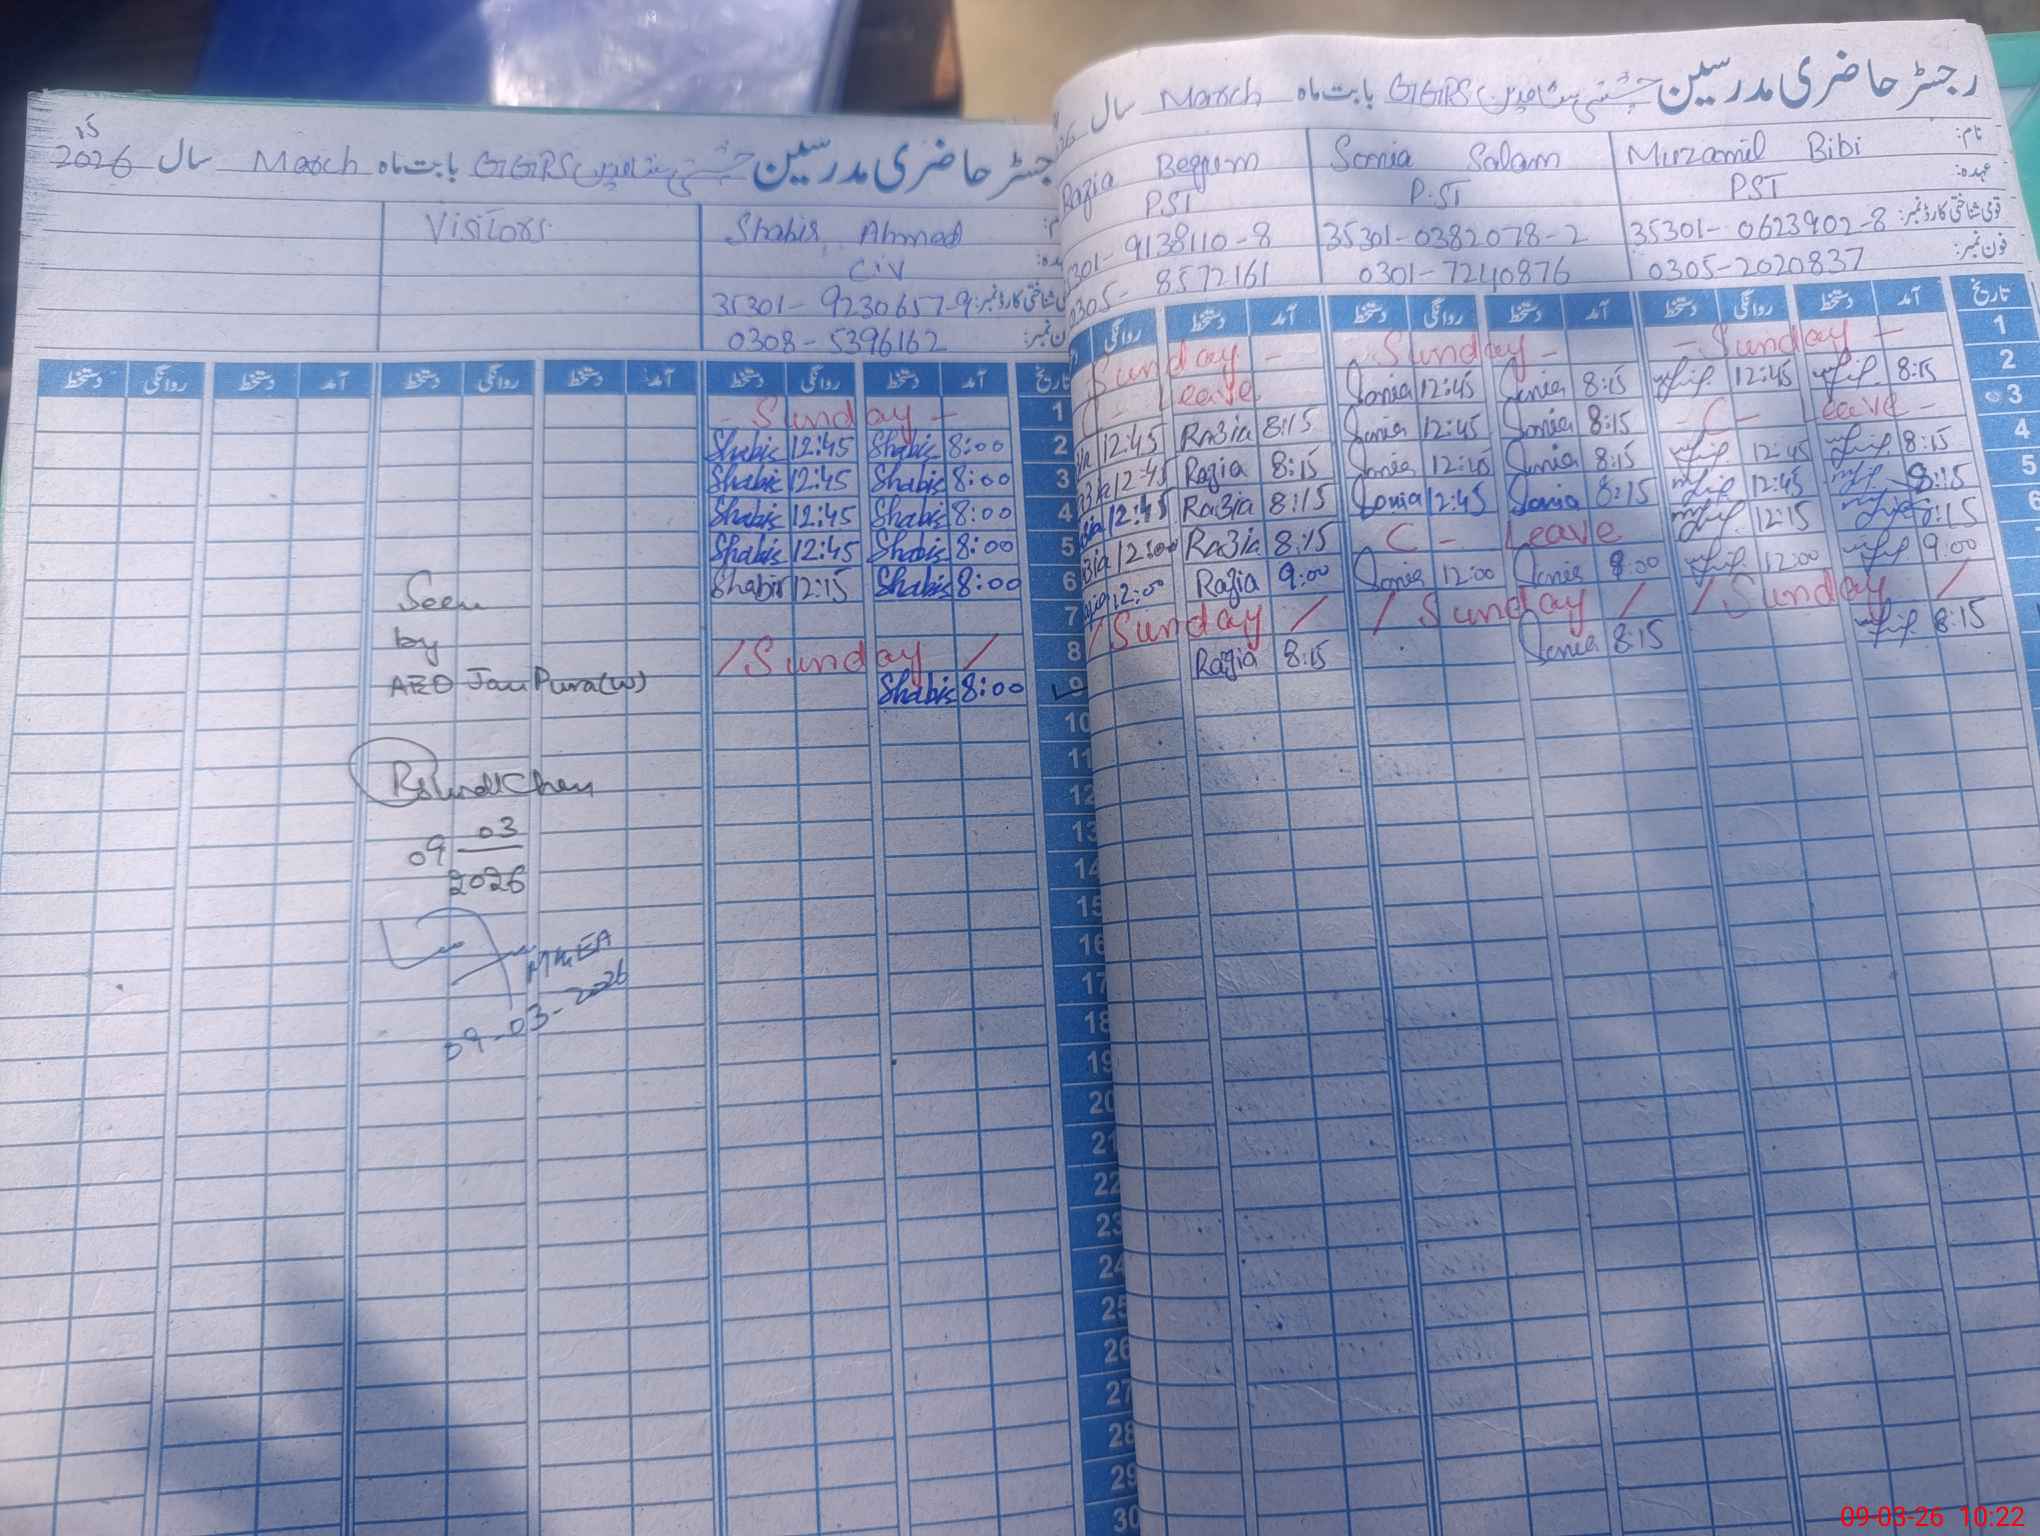 رجسٹر حاضری مدرسین GGPS بابت ماہ March سال
نام: Muzamil Bibi Sonia Salam Razia Begum
عہدہ: PST P.ST PST
قومی شناختی کارڈ نمبر: 35301-0623902-8 35301-0382078-2 301-9138110-8
فون نمبر: 0305-2020837 0301-7240876 0305-8572161
تاریخ آمد دستخط روانگی دستخط آمد دستخط روانگی دستخط آمد دستخط روانگی
1 - Sunday - - Sunday - Sunday -
2 8:15 12:45 8:15 Sonia 12:45 Sonia Leave
3 - C - Leave - 8:15 Sonia 12:45 Sonia 8:15 Razia 12:45
4 8:15 12:45 8:15 Sonia 12:45 Sonia 8:15 Razia 12:45
5 8:15 12:45 8:15 Sonia 12:45 Sonia 8:15 Razia 12:45
6 8:15 12:15 C - Leave 8:15 Razia 12:00
9:00 12:00 8:00 Sonia 12:00 Sonia 9:00 Razia 12:00
/ Sunday / / Sunday / / Sunday /
8:15 8:15 Sonia 8:15 Razia
رجسٹر حاضری مدرسین GGPS بابت ماہ March سال 2026
Shabir Ahmed Visitors
CIV
شناختی کارڈ نمبر: 35301-9230657-9
فون نمبر: 0308-5396162
تاریخ آمد دستخط روانگی دستخط آمد دستخط روانگی دستخط آمد دستخط روانگی دستخط
1 - Sunday -
2 8:00 Shabir 12:45 Shabir
3 8:00 Shabir 12:45 Shabir
4 8:00 Shabir 12:45 Shabir
5 8:00 Shabir 12:45 Shabir
6 8:00 Shabir 12:15 Shabir
7
8 / Sunday /
9 8:00 Shabir
10
11
12
13
14
15
16
17
18
19
20
21
22
23
24
25
26
27
28
29
30
Seen
by
AEO Jan Pura(W)
09 03
2026
MEA
09-03-2026
09-03-26 10:22